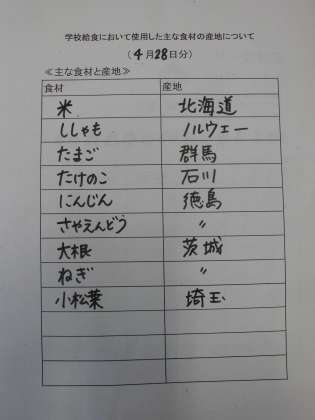 学校給食において使用した主な食材の産地について
(4月28日分)
≪主な食材と産地≫
食材 産地
米 北海道
ししゃも ノルウェー
たまご 群馬
たけのこ 石川
にんじん 徳島
さやえんどう 〃
大根 茨城
ねぎ 〃
小松菜 埼玉